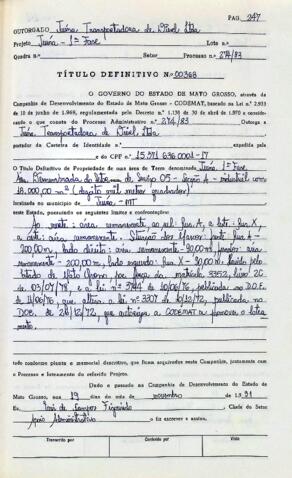 PAG. 247
OUTORGADO Juína Transportadora de Diesel Ltda
Projeto Juína - 1ª Fase Lote n.o
Quadra n.o Setor Processo n.o 274/83
TÍTULO DEFINITIVO N.o 00368
O GOVERNO DO ESTADO DE MATO GROSSO, através da
Companhia de Desenvolvimento do Estado de Mato Grosso - CODEMAT, com base na Lei n.o 2.933
10 de junho de 1969, regulamentada pelo Decreto n.o 1.138 de 30 de abril de 1970 e
considerando o que consta do Processo Administrativo n.o 274/83 Outorga a
Juína Transportadora de Diesel Ltda
portador da Carteira de Identidade n.o expedida pela
e do CPF n.o 15.571.636.0001-17
O Título Definitivo de Propriedade de sua área de Terra denominada Juína 1ª Fase
Seção A - industrial com
18.000,00 m² (dezoito mil metros quadrados)
localizada no município de Juína - MT
neste Estado, possuindo os seguintes limites e confrontações:
Ao norte: área remanescente ao sul: Rua A, a leste: Rua X
e oeste: área remanescente. Rua A -
200,00m, lado direito: área remanescente - 90,00m
remanescente - 200,00m, lado esquerdo: Rua X - 90,00m
Estado de Mato Grosso por força da matrícula 3352, livro 2C
de 03/07/78 e a lei nº 3744 de 10/06/76, publicada no D.O.E.
de 11/06/76, que altera a lei nº 3307 de 18/12/72, publicada no
D.O.E. de 26/12/72, que autoriza a CODEMAT a promover o lotea
mento.
tudo conforme planta e memorial descritivo, que ficam arquivados nesta Companhia, juntamente com
o Processo e loteamento do referido Projeto.
Dado e passado na Companhia de Desenvolvimento do Estado de
Mato Grosso, aos 19 dias do mês de novembro de 1.991
Eu, José de Campos Figueiredo Chefe do Setor
Apoio Administrativo o fiz escrever e assino.
Transcrito por Conferido por Visto